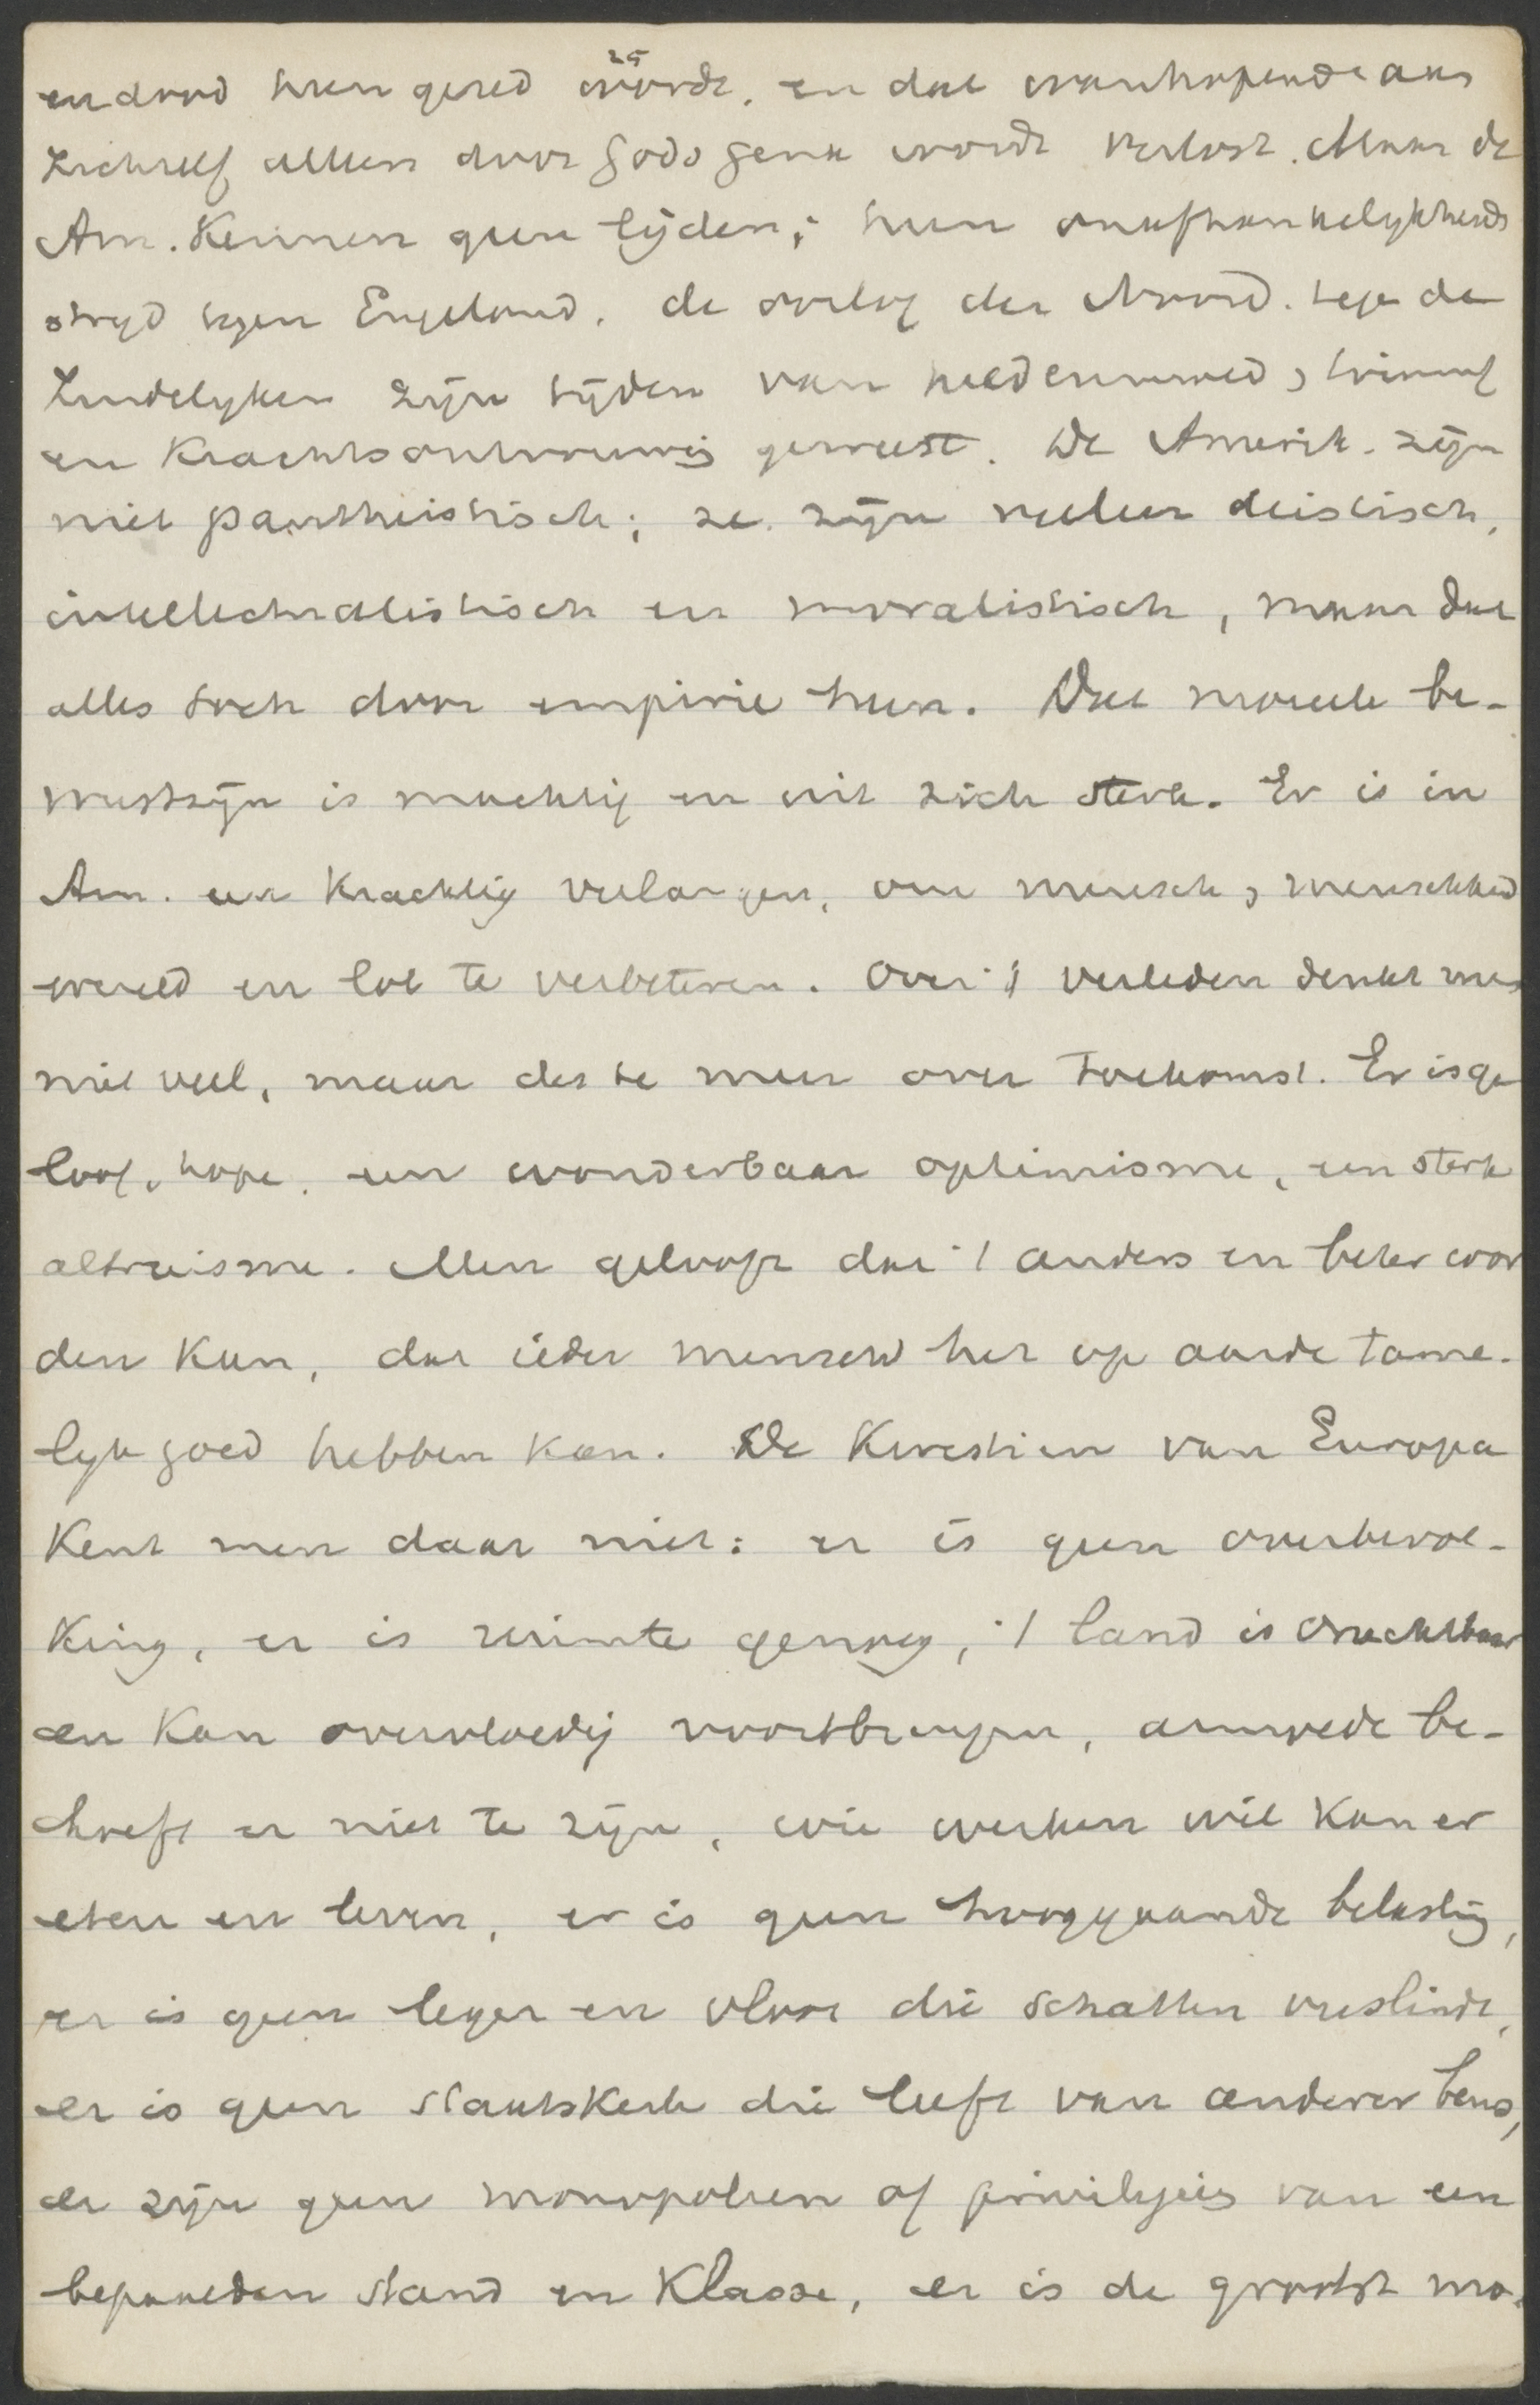 25
en dood heen gered wordt, en dat wanhopende aan
zichzelf alleen door Gods gena wordt verlost. Maar de
Am. kennen geen lijden; hun onafhankelijkheids
strijd tegen Engeland, de oorlog der Noord. tege de
Zuidelyken zijn tijden van heldenmoed, triumf
en krachtsontvouwing geweest. De Amerik. zijn
niet pantheistisch; ze zijn veeleer deistisch,
intellectualistisch en moralistisch, maar dat
alles toch door empirie heen. Het moreele be-
wustzijn is machtig en uit zich sterk. Er is in
Am. een krachtig verlangen, om mensch, menschheid
wereld en lot te verbeteren. Over 't verleden denkt men
niet veel, maar des te meer over toekomst. Er is ge
loof, hope, een wonderbaar optimisme, een sterk
altruisme. Men gelooft dat 't anders en beter wor
den kan, dat ieder mensch het op aarde tame-
lyk goed hebben kan. De kwestien van Europa
kent men daar niet: er is geen overbevol-
king, er is ruimte genoeg, 't land is vruchtbaar
en kan overvloedig voortbrengen, armoede be-
hoeft er niet te zijn, wie werken wil kan er
eten en leven, er is geen hooggaande belasting,
er is geen leger en vloot die schatten verslindt,
er is geen staatskerk die leeft van anderer beurs,
er zijn geen monopolien of privilegies van een
bepaalden stand en klasse, er is de grootst mo-